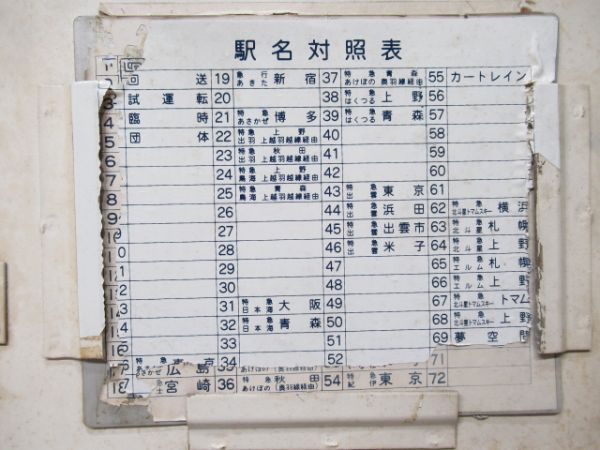 駅名対照表
回送
試運転
臨時
団体
19 急行 あきた 新宿
20
21 特急 あさかぜ 博多
22 特急 上野 出羽 上越羽越線経由
23 特急 秋田 出羽 上越羽越線経由
24 特急 上野 鳥海 上越羽越線経由
25 特急 青森 鳥海 上越羽越線経由
26
27
28
29
30
31 特急 日本海 大阪
32 特急 日本海 青森
33
34
あけぼの(奥羽線経由)
36 特急 秋田 あけぼの(奥羽線経由)
37 特急 青森 あけぼの 奥羽線経由
38 特急 はくつる 上野
39 特急 はくつる 青森
40
41
42
43 特急 出雲 東京
44 特急 出雲 浜田
45 特急 出雲 出雲市
46 特急 出雲 米子
47
48
49
50
51
52
54 特急 紀伊 東京
55 カートレイン
56
57
58
59
60
61
62 特急 北斗星トマムスキー 横浜
63 特急 北斗星 札幌
64 特急 北斗星 上野
65 特急 エルム 札幌
66 特急 エルム 上野
67 特急 北斗星トマムスキー トマム
68 特急 北斗星トマムスキー 上野
69 夢空間
71
72
特急 東京
あさかぜ 広島
宮崎